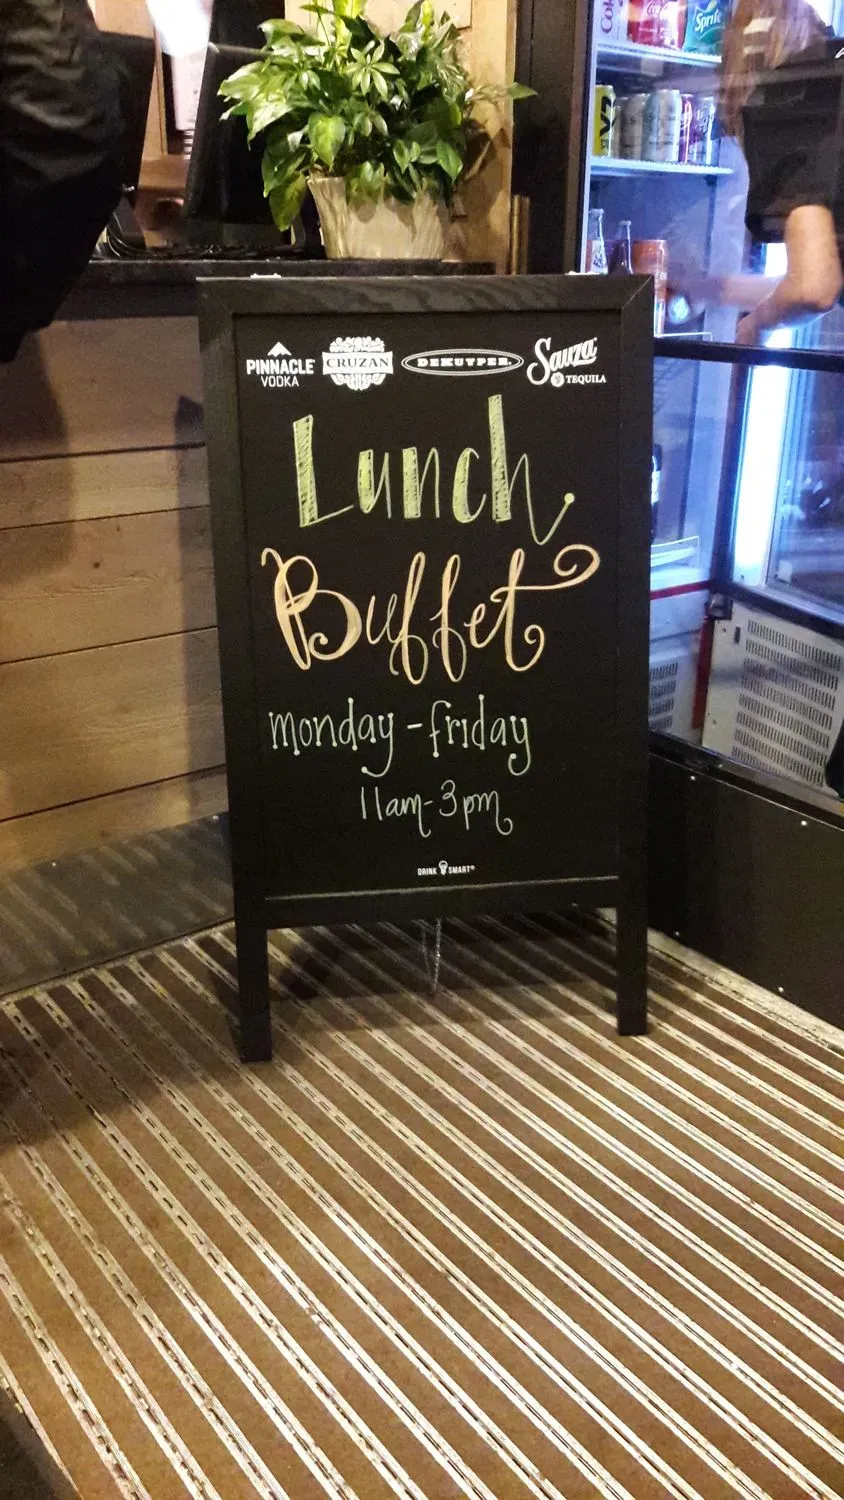 Coke
Sprite
PINNACLE VODKA
CRUZAN
DEKUYPER
Sauza TEQUILA
Lunch
Buffet
monday - friday
11am - 3pm
DRINK SMART®